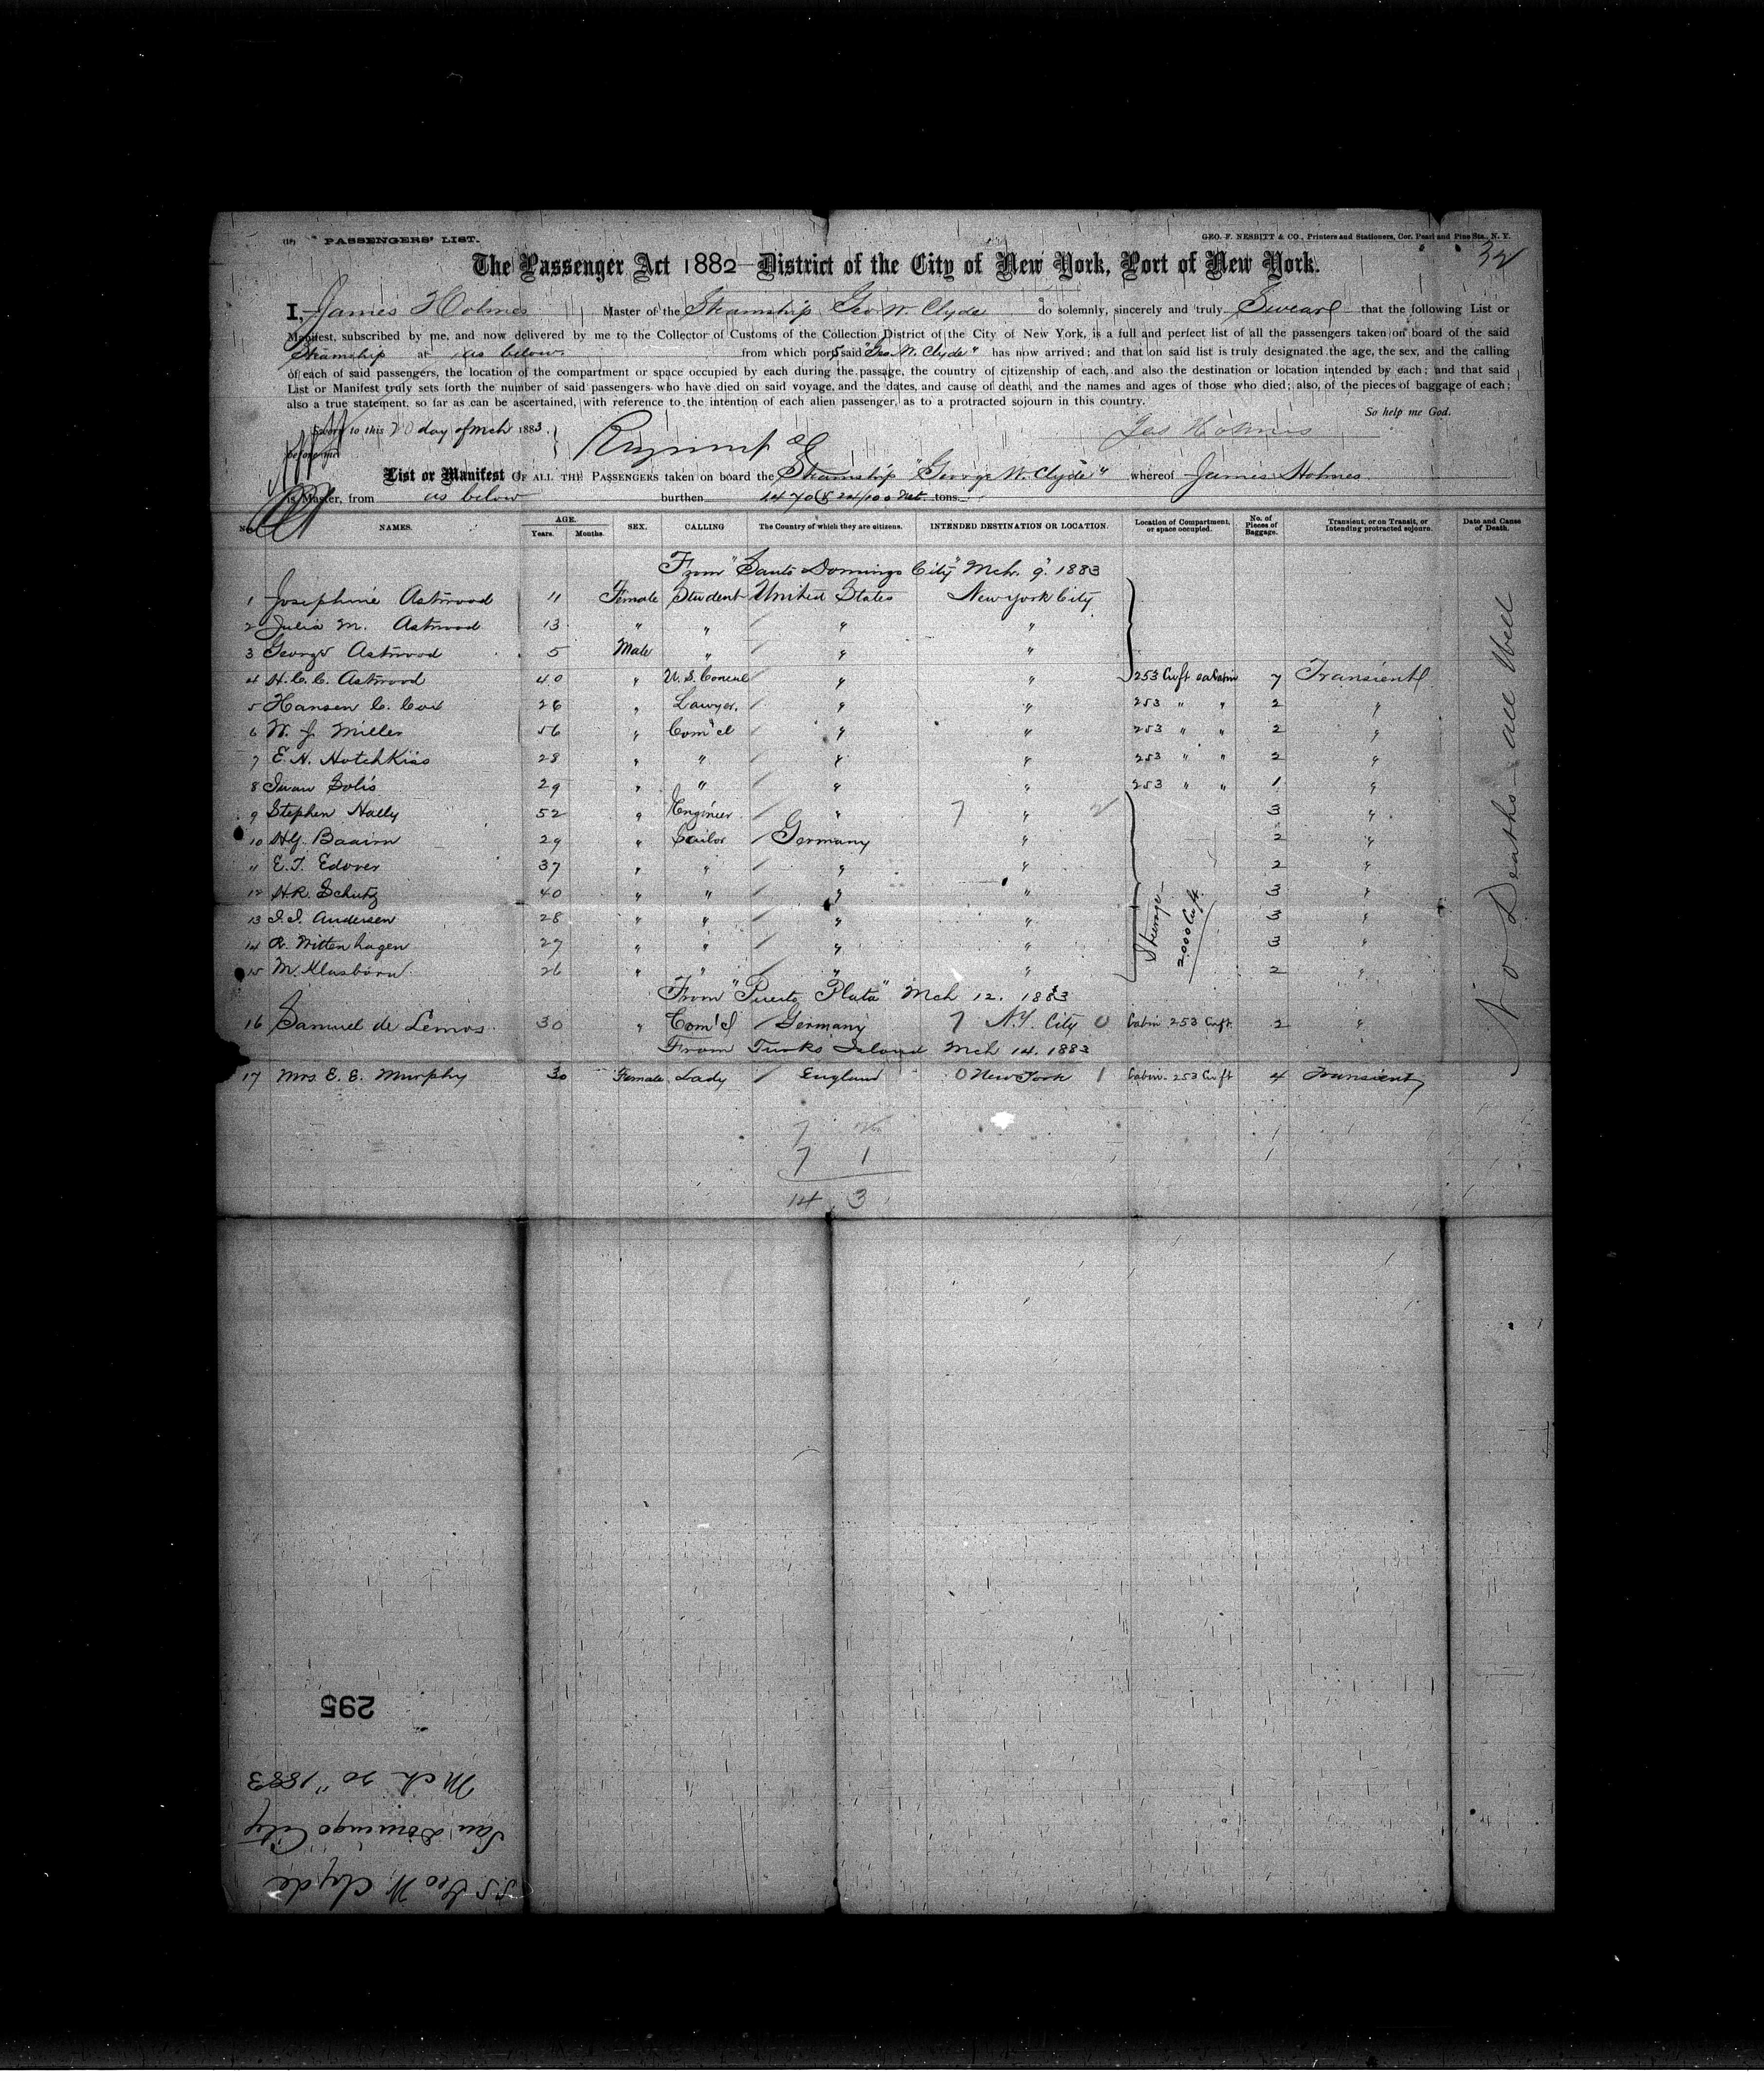 (18) PASSENGERS' LIST.
GEO. F. NESBITT & CO., Printers and Stationers, Cor. Pearl and Pine Sts., N. Y.
32
The Passenger Act 1882 District of the City of New York, Port of New York.
I, James Holmes Master of the Steamship Geo W. Clyde do solemnly, sincerely and truly Swear that the following List or
Manifest, subscribed by me, and now delivered by me to the Collector of Customs of the Collection District of the City of New York, is a full and perfect list of all the passengers taken on board of the said
Steamship at as below from which ports said "Geo W. Clyde" has now arrived; and that on said list is truly designated the age, the sex, and the calling
of each of said passengers, the location of the compartment or space occupied by each during the passage, the country of citizenship of each, and also the destination or location intended by each; and that said
List or Manifest truly sets forth the number of said passengers who have died on said voyage, and the dates, and cause of death, and the names and ages of those who died; also, of the pieces of baggage of each;
also a true statement, so far as can be ascertained, with reference to the intention of each alien passenger, as to a protracted sojourn in this country.
So help me God.
Sworn to this 20 day of Mch 1883.
Jas Holmes
before me
List or Manifest OF ALL THE PASSENGERS taken on board the Steamship "George W. Clyde" whereof James Holmes
is Master, from as below burthen 1470 & 24/100 Net tons.
No. NAMES. AGE. Years. Months. SEX. CALLING The Country of which they are citizens. INTENDED DESTINATION OR LOCATION. Location of Compartment, or space occupied. No. of Pieces of Baggage. Transient, or on Transit, or Intending protracted sojourn. Date and Cause of Death.
From "Santo Domingo City" Mch. 9. 1883
1 Josephine Astwood 11 Female Student United States New York City
2 Julia M. Astwood 13 " " " "
3 George Astwood 5 Male " " "
4 H. C. C. Astwood 40 " U.S. Consul " " 253 Cuft ea Cabin 7 Transient
5 Hansen C. Cox 26 " Lawyer. " " 253 " " 2 "
6 W. J. Miller 56 " Com'cl " " 253 " " 2 "
7 E. H. Hotchkiss 28 " " " " 253 " " 2 "
8 Juan Solis 29 " " " " 253 " " 1 "
9 Stephen Hally 52 " Engineer " 7 " 2 3 "
10 29 " Sailor Germany " 2 "
11 E. T. Edover 37 " " " " 2 "
12 H. R. Schutz 40 " " " " 3 "
13 J. J. Andersen 28 " " " " 3 "
14 R. Wittenhagen 27 " " " " 3 "
15 M. Klasborn 26 " " " " 2 "
Steerage 2000 Cuft.
From "Puerto Plata" Mch 12. 1883
16 Samuel de Lemos 30 " Com'l Germany 7 N.Y. City 0 Cabin 253 Cuft. 2 "
From Turks Island Mch 14. 1883
17 Mrs. E. E. Murphy 30 Female Lady England 0 New York 1 Cabin 253 Cuft 4 Transient
No Deaths - all Well
7
7 1
14 3
295
Mch 20" 1883
San Domingo City
S.S. Geo W. Clyde